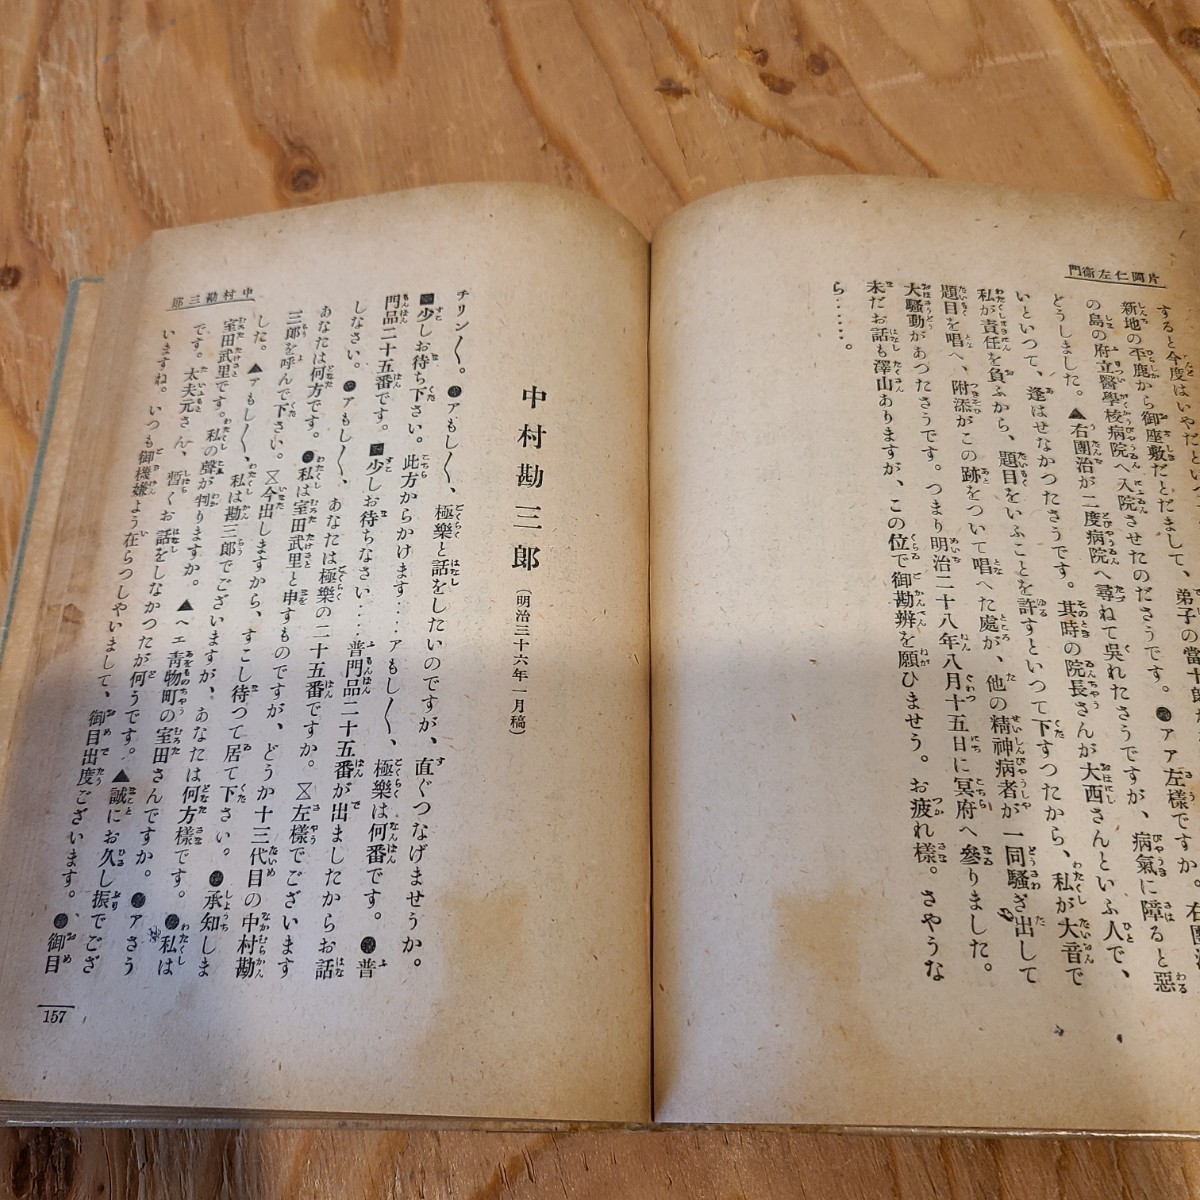 片岡仁左衛門
すると今度はいやだといつ
新地の平鹿から御座敷だとだまして、弟子の當十郎
の島の府立醫學校病院へ入院させたのださうです。●アァ左樣ですか。右團治
どうしました。▲右團治が二度病院へ尋ねて吳れたさうですが、病氣に障ると惡
いといつて、逢はせなかつたさうです。其時の院長さんが大西さんといふ人で、
私が責任を負ふから、題目をいふことを許すといつて下すつたから、私が大音で
題目を唱へ、附添がこの跡をついて唱へた處が、他の精神病者が一同騷ぎ出して
大騷動があつたさうです。つまり明治二十八年八月十五日に冥府へ參りました。
未だお話も澤山ありますが、この位で御勘辨を願ひませう。お疲れ樣。さやうな
ら……。
中村勘三郎
中村勘三郎（明治三十六年一月稿）
チリン〳〵。●アもし〳〵、極樂と話をしたいのですが、直ぐつなげませうか。
■少しお待ち下さい。此方からかけます…アもし〳〵、極樂は何番です。●普
門品二十五番です。■少しお待ちなさい……普門品二十五番が出ましたからお話
しなさい。●アもし〳〵、あなたは極樂の二十五番ですか。⧖左樣でございます
あなたは何方です。●私は室田武里と申すものですが、どうか十三代目の中村勘
三郎を呼んで下さい。⧖今出しますから、すこし待つて居て下さい。●承知しま
した。▲アもし〳〵、私は勘三郎でございますが、あなたは何方樣です。●私は
室田武里です。私の聲が判りますか。▲ヘエ靑物町の室田さんですか。●アさう
です。太夫元さん、暫くお話をしなかつたが何うです。▲誠にお久し振でござ
いますね。いつも御機嫌よう在らつしやいまして、御目出度ございます。●御目
157